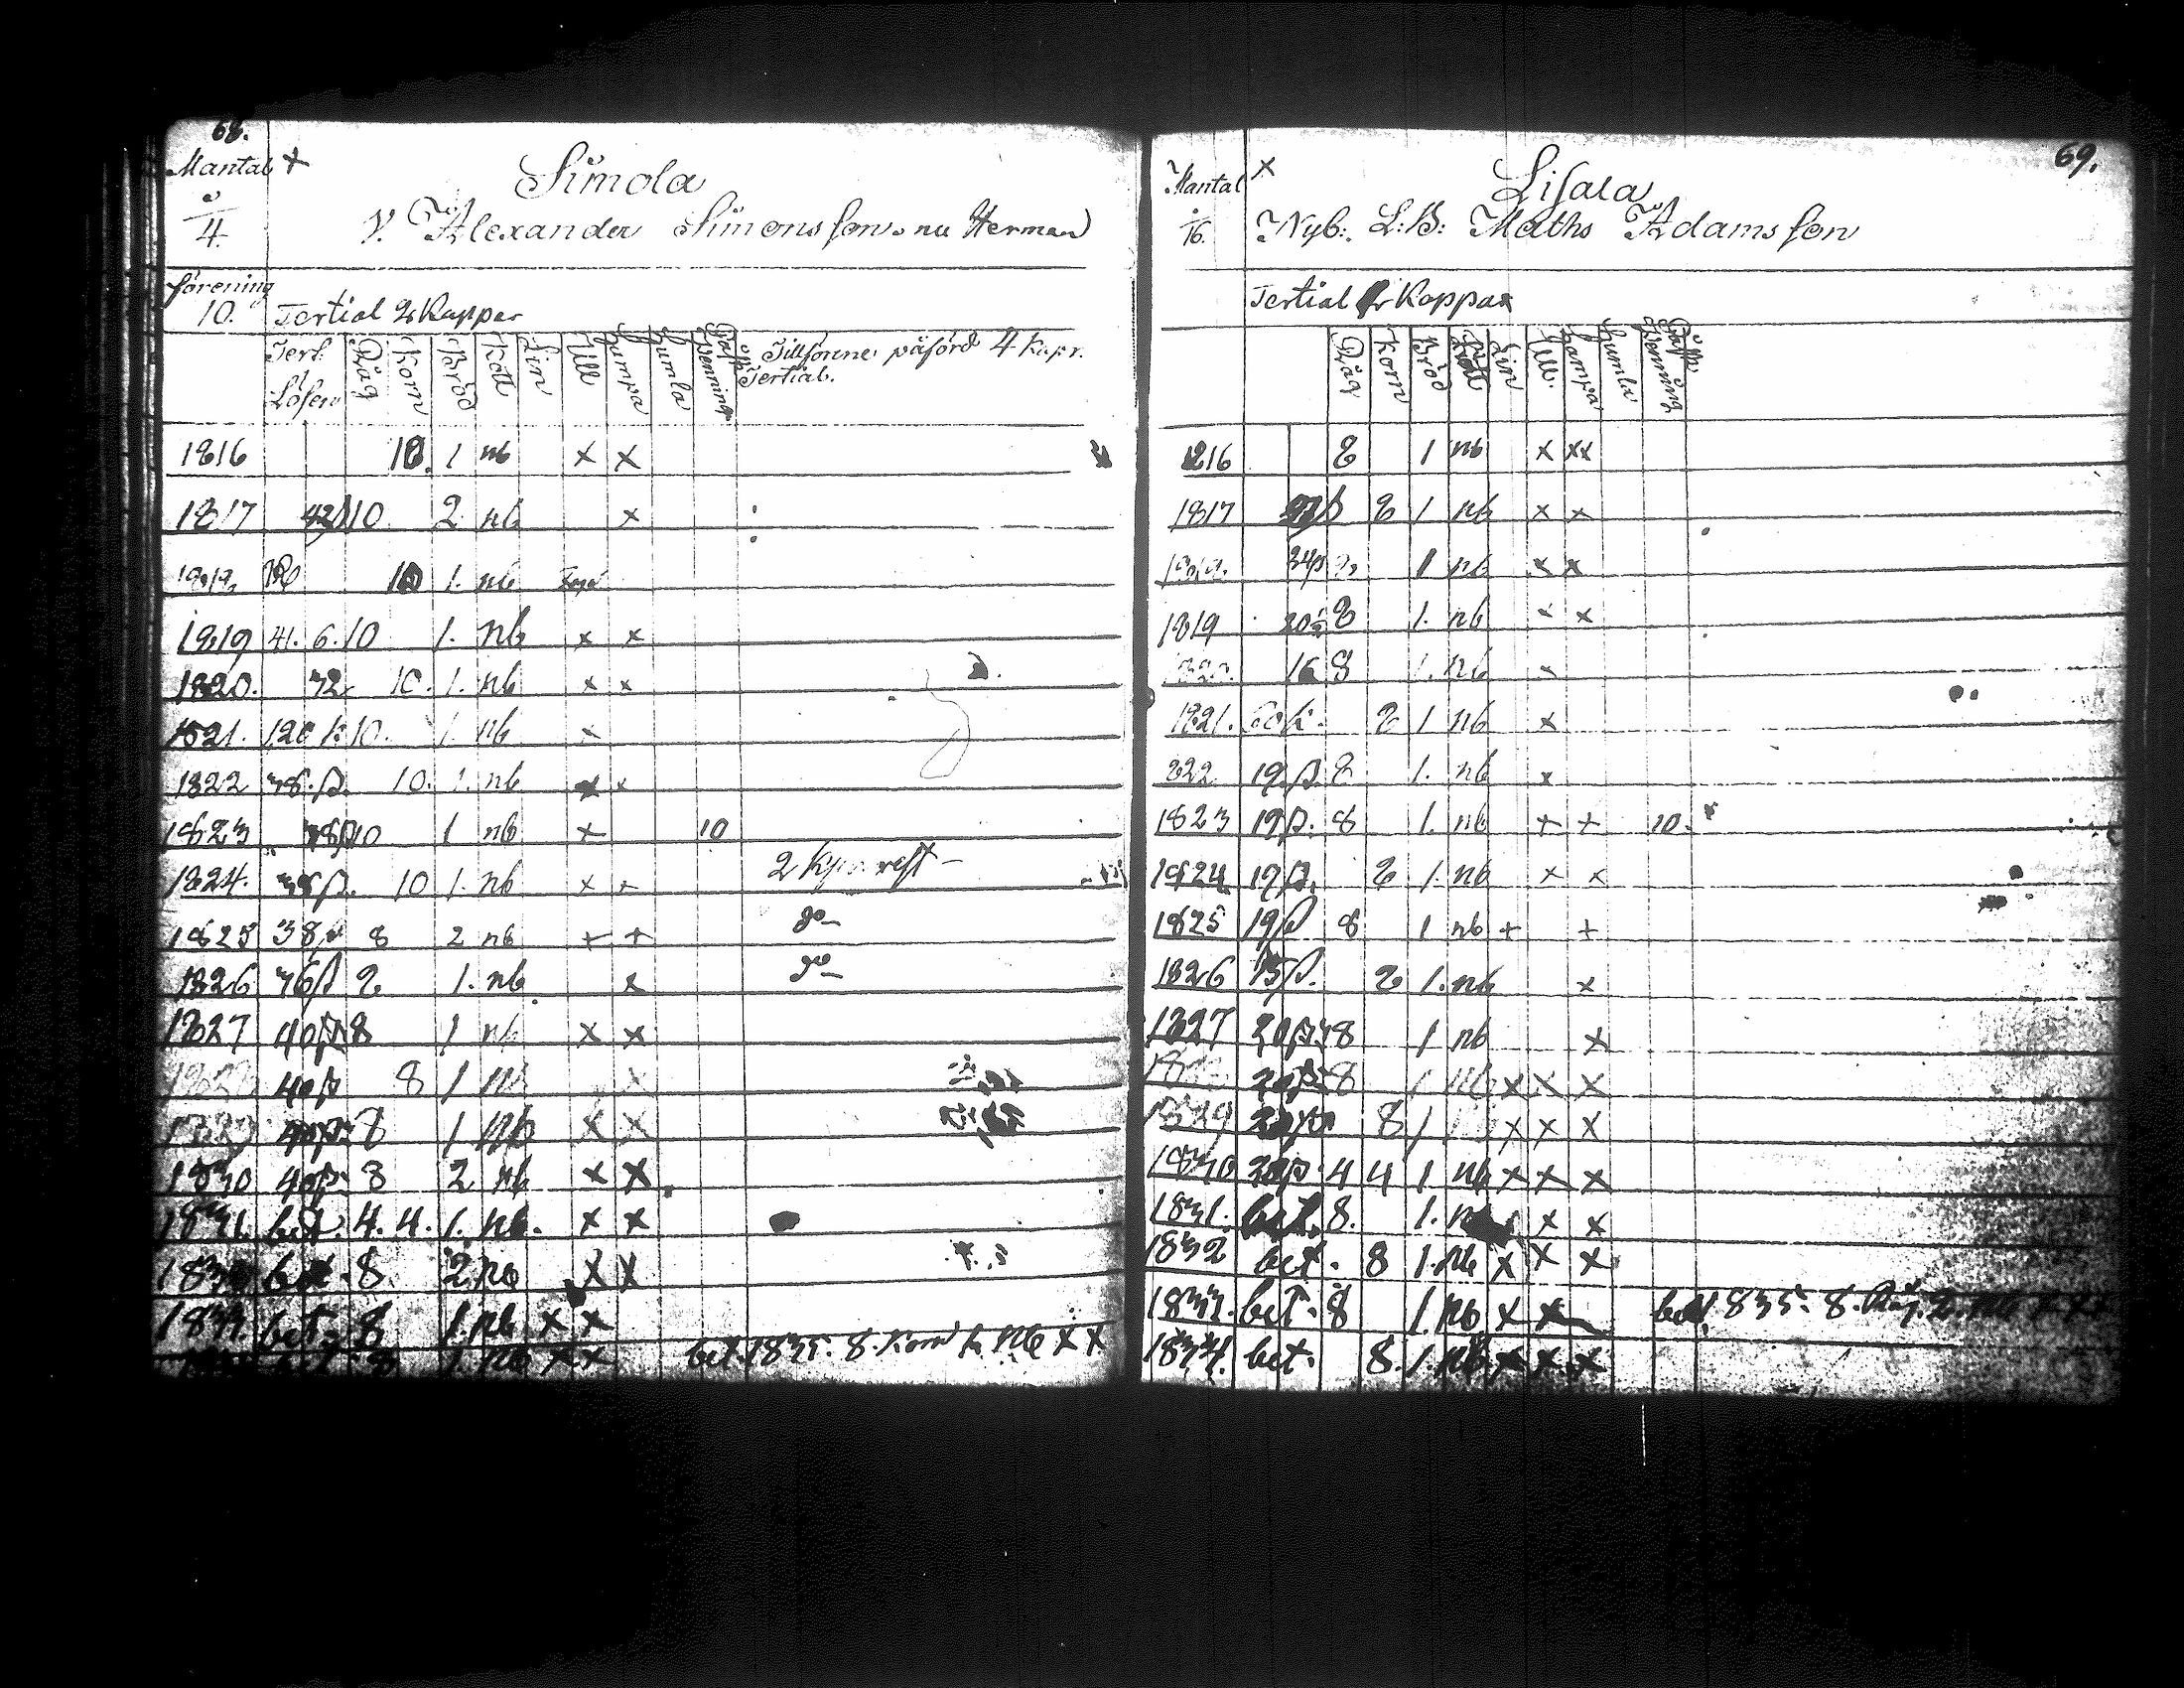 68.
Mantal x
4.
Simola
V. Alexander Simonsson nu Herman
förening
10. Tertial 2 Kappar
Tert: Lösen Råg Korn Bröd Kött Lin Ull Hampa Humla Påsk Penning Tillforne påförd 4 Kapr. Tertial.
1816 10. 1 nb x x
1817 10 2 nb x
10 1. nb
1819 41. 6. 10 1. nb x x
1820. 10. 1. nb x x
1821. 10. 1. nb x
1822 38. β. 10. 1. nb x x
1823 10 1 nb x 10
1824. 38 β. 10 1. nb x x 2 kpr rest –
1825 38 8 2 nb x x do–
1826 36β 8 1. nb x do–
1827 40β 8 1 nb x x
40β 8 1 nb x
40β 8 1 nb x x
1830 40β 8 2 nb x x
1831. bet. 4. 4. 1. nb. x x
bet. 8 2 nb x x
1833. bet. 8 1. nb x x
8 1. nb x x bet. 1835. 8. Korn nb x x
69.
Mantal x
16.
Lisala
Nyb: L:B: Maths Adamsson
Tertial Kappar
Råg Korn Bröd Kött Lin Ull Hampa Humla Påsk Penning
1816 8 1 nb x xx
1817 8 1 nb x x
34β 1 nb x x
1819 8 1. nb x x
16 8 1. nb x
1821. 60 k. 8 1 nb x
1822 19 β. 8 1. nb x
1823 19 β. 8 1. nb x x 10.
1824 19 β. 8 1. nb x x
1825 19β 8 1 nb x x
1826 β. 8 1. nb x
1827 20β 8 1 nb x
20β 8 1 nb x x x
1829 8 1 x x x
1830 20β. 4 4 1. nb x x x
1831. bet. 8. 1. x x
1832 bet. 8 1. nb x x x
1833. bet. 8 1. nb x x bet. 1835. 8. Råg. 2. nb x x x
1834. bet. 8. 1. nb x x x